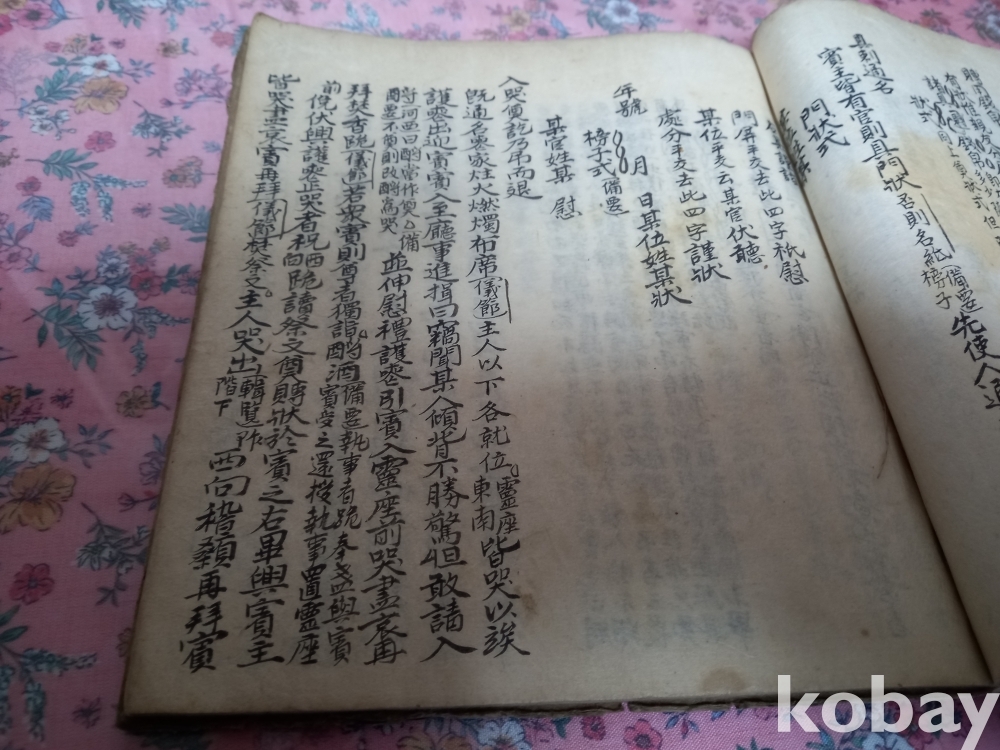 具刺通名
賓主皆有官則具門狀否則名紙 備要 榜子 先使人通
門狀式
某位某
門屏 平交去此四字 祗慰
某位 平交云某官 伏聽
處分 平交去此四字 謹狀
年號 月 日某位姓某狀
榜子式 備要
某官姓某 慰
入哭奠訖乃弔而退
旣通名喪家炷火燃燭布席 儀節 主人以下各就位 靈座東南 皆哭以俟
護喪出迎賓賓入至廳事進揖曰竊聞某人傾背不勝驚怛敢請入
酹 並伸慰禮護喪引賓入靈座前哭盡哀再
拜焚香跪 儀節 若衆賓則尊者獨詣 酹酒 備要 執事者跪奉盞與賓
賓受之還授執事置靈座
前俛伏興護喪止哭者祝西向跪讀祭文奠賻狀於賓之右畢興賓主
皆哭盡哀賓再拜 儀節 焚祭文 主人哭出 輯覽 阼階下 西向稽顙再拜賓
kobay